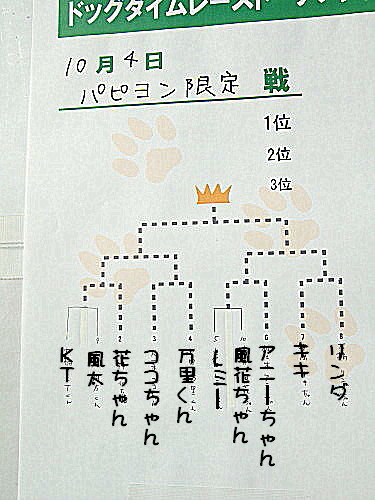 ドッグタイムレーストーナメント
10月4日
パピヨン限定 戦
1位
2位
3位
KT
風太
花ちゃん
ココちゃん
万里くん
レミー
風花ちゃん
アニーちゃん
キキ
リンダ